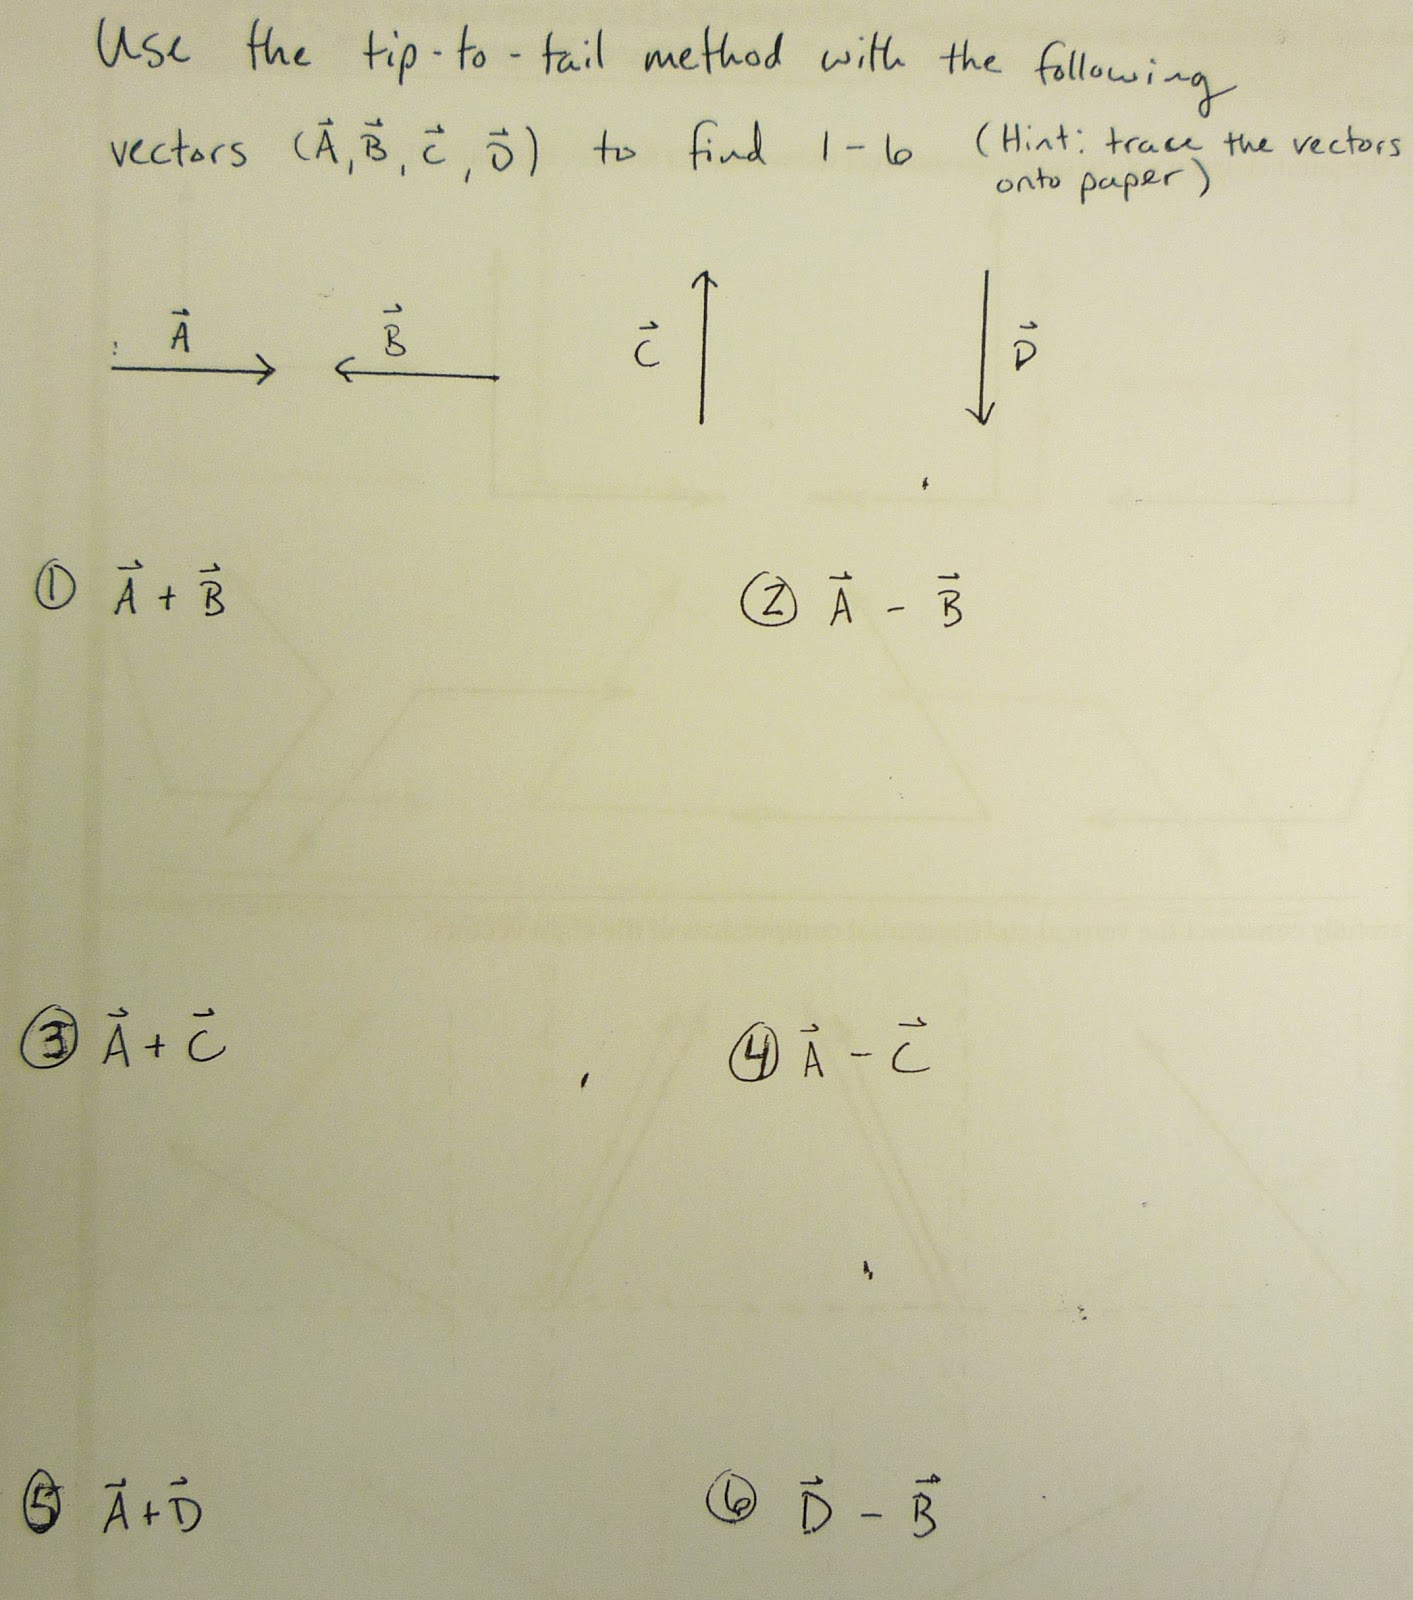 Use the tip-to-tail method with the following
vectors (A⃗, B⃗, C⃗, D⃗) to find 1-6 (Hint: trace the vectors
onto paper)
A⃗ B⃗ C⃗ D⃗
① A⃗ + B⃗ ② A⃗ - B⃗
③ A⃗ + C⃗ ④ A⃗ - C⃗
⑤ A⃗ + D⃗ ⑥ D⃗ - B⃗